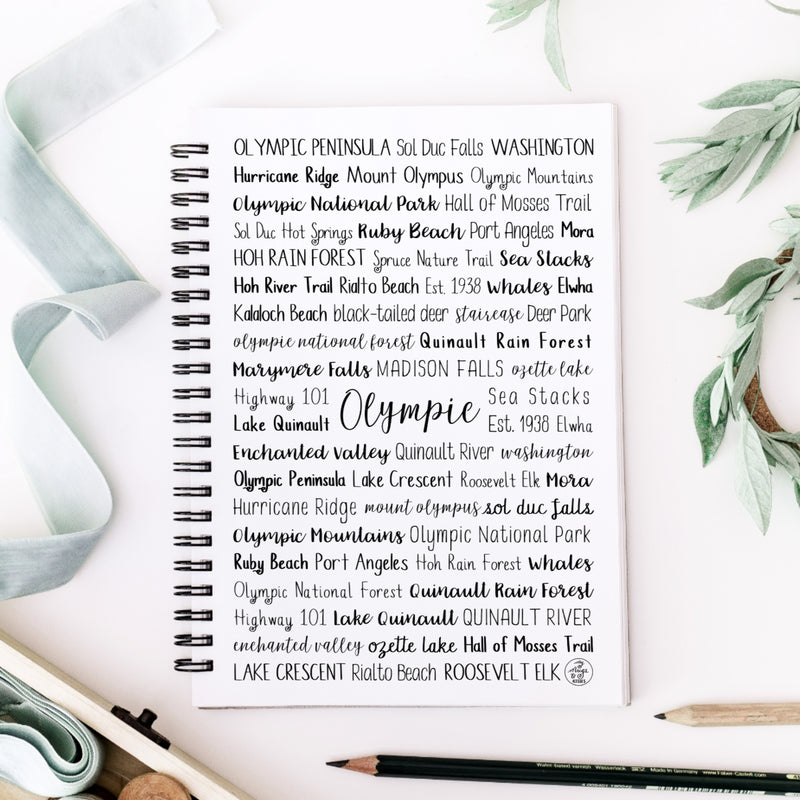 OLYMPIC PENINSULA Sol Duc Falls WASHINGTON
Hurricane Ridge Mount Olympus Olympic Mountains
Olympic National Park Hall of Mosses Trail
Sol Duc Hot Springs Ruby Beach Port Angeles Mora
HOH RAIN FOREST Spruce Nature Trail Sea Stacks
Hoh River Trail Rialto Beach Est. 1938 Whales Elwha
Kalaloch Beach black-tailed deer staircase Deer Park
olympic national forest Quinault Rain Forest
Marymere Falls MADISON FALLS ozette lake
Highway 101 Sea Stacks
Olympic
Lake Quinault Est. 1938 Elwha
Enchanted Valley Quinault River washington
Olympic Peninsula Lake Crescent Roosevelt Elk Mora
Hurricane Ridge mount olympus sol duc falls
Olympic Mountains Olympic National Park
Ruby Beach Port Angeles Hoh Rain Forest Whales
Olympic National Forest Quinault Rain Forest
Highway 101 Lake Quinault QUINAULT RIVER
enchanted valley ozette lake Hall of Mosses Trail
LAKE CRESCENT Rialto Beach ROOSEVELT ELK
Made in Germany www.Faber-Castell